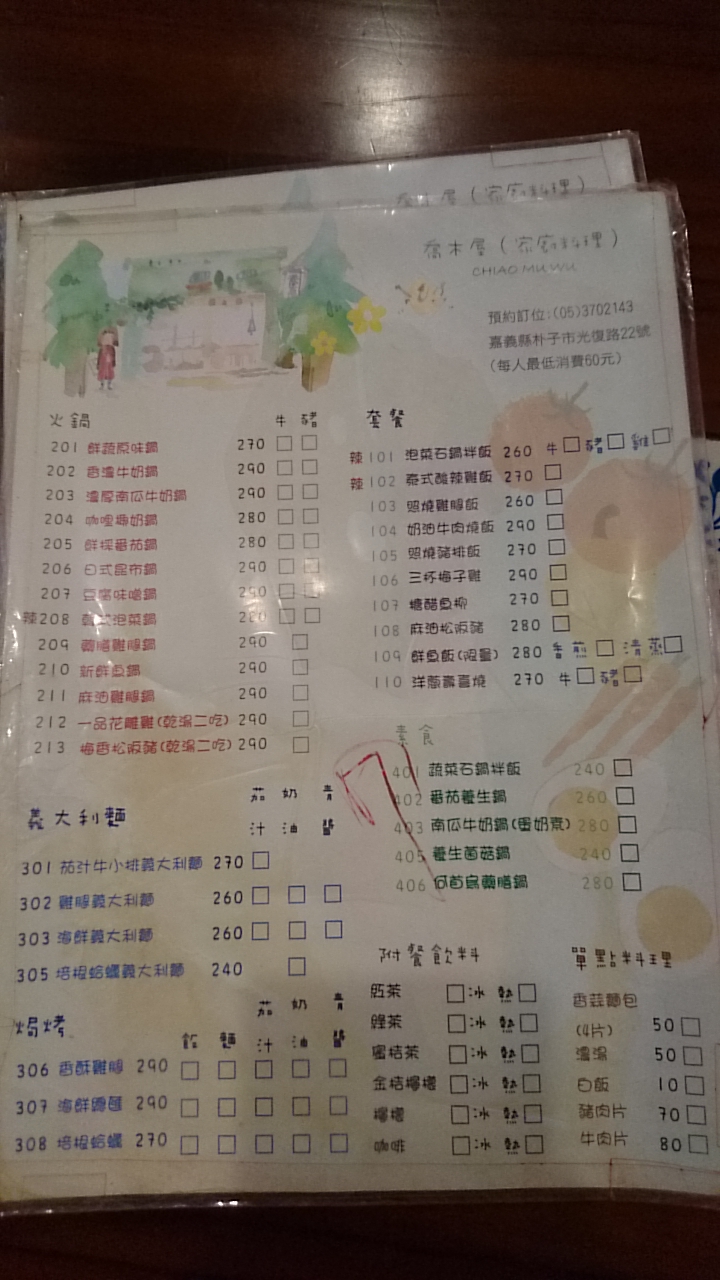 喬木屋（家庭料理）
喬木屋（家庭料理）
CHIAO MU WU
預約訂位:(05)3702143
嘉義縣朴子市光復路22號
(每人最低消費60元)
火鍋 牛 豬
201 鮮蔬原味鍋 270 □ □
202 香濃牛奶鍋 290 □ □
203 濃厚南瓜牛奶鍋 290 □ □
204 咖哩椰奶鍋 280 □ □
205 鮮採番茄鍋 280 □ □
206 日式昆布鍋 290 □ □
207 豆腐味噌鍋 290 □ □
辣 208 韓式泡菜鍋 280 □ □
209 藥膳雞腿鍋 290 □
210 新鮮魚鍋 290 □
211 麻油雞腿鍋 290 □
212 一品花雕雞(乾湯二吃) 290 □
213 梅香松阪豬(乾湯二吃) 290 □
套餐
辣 101 泡菜石鍋拌飯 260 牛□ 豬□ 雞□
辣 102 泰式酸辣雞飯 270 □
103 照燒雞腿飯 260 □
104 奶油牛肉燒飯 290 □
105 照燒豬排飯 270 □
106 三杯梅子雞 290 □
107 糖醋魚柳 270 □
108 麻油松阪豬 280 □
109 鮮魚飯(限量) 280 香煎□ 清蒸□
110 洋蔥壽喜燒 270 牛□ 豬□
素食
401 蔬菜石鍋拌飯 240 □
402 番茄養生鍋 260 □
403 南瓜牛奶鍋(蛋奶素) 280 □
405 養生菌菇鍋 240 □
406 何首烏藥膳鍋 280 □
義大利麵 茄汁 奶油 青醬
301 茄汁牛小排義大利麵 270 □
302 雞腿義大利麵 260 □ □ □
303 海鮮義大利麵 260 □ □ □
305 培根蛤蠣義大利麵 240 □
焗烤 飯 麵 茄汁 奶油 青醬
306 香酥雞腿 290 □ □ □ □ □
307 海鮮 290 □ □ □ □ □
308 培根蛤蠣 270 □ □ □ □ □
附餐飲料
紅茶 □冰 熱□
綠茶 □冰 熱□
蜜桔茶 □冰 熱□
金桔檸檬 □冰 熱□
檸檬 □冰 熱□
咖啡 □冰 熱□
單點料理
香蒜麵包
(4片) 50 □
濃湯 50 □
白飯 10 □
豬肉片 70 □
牛肉片 80 □